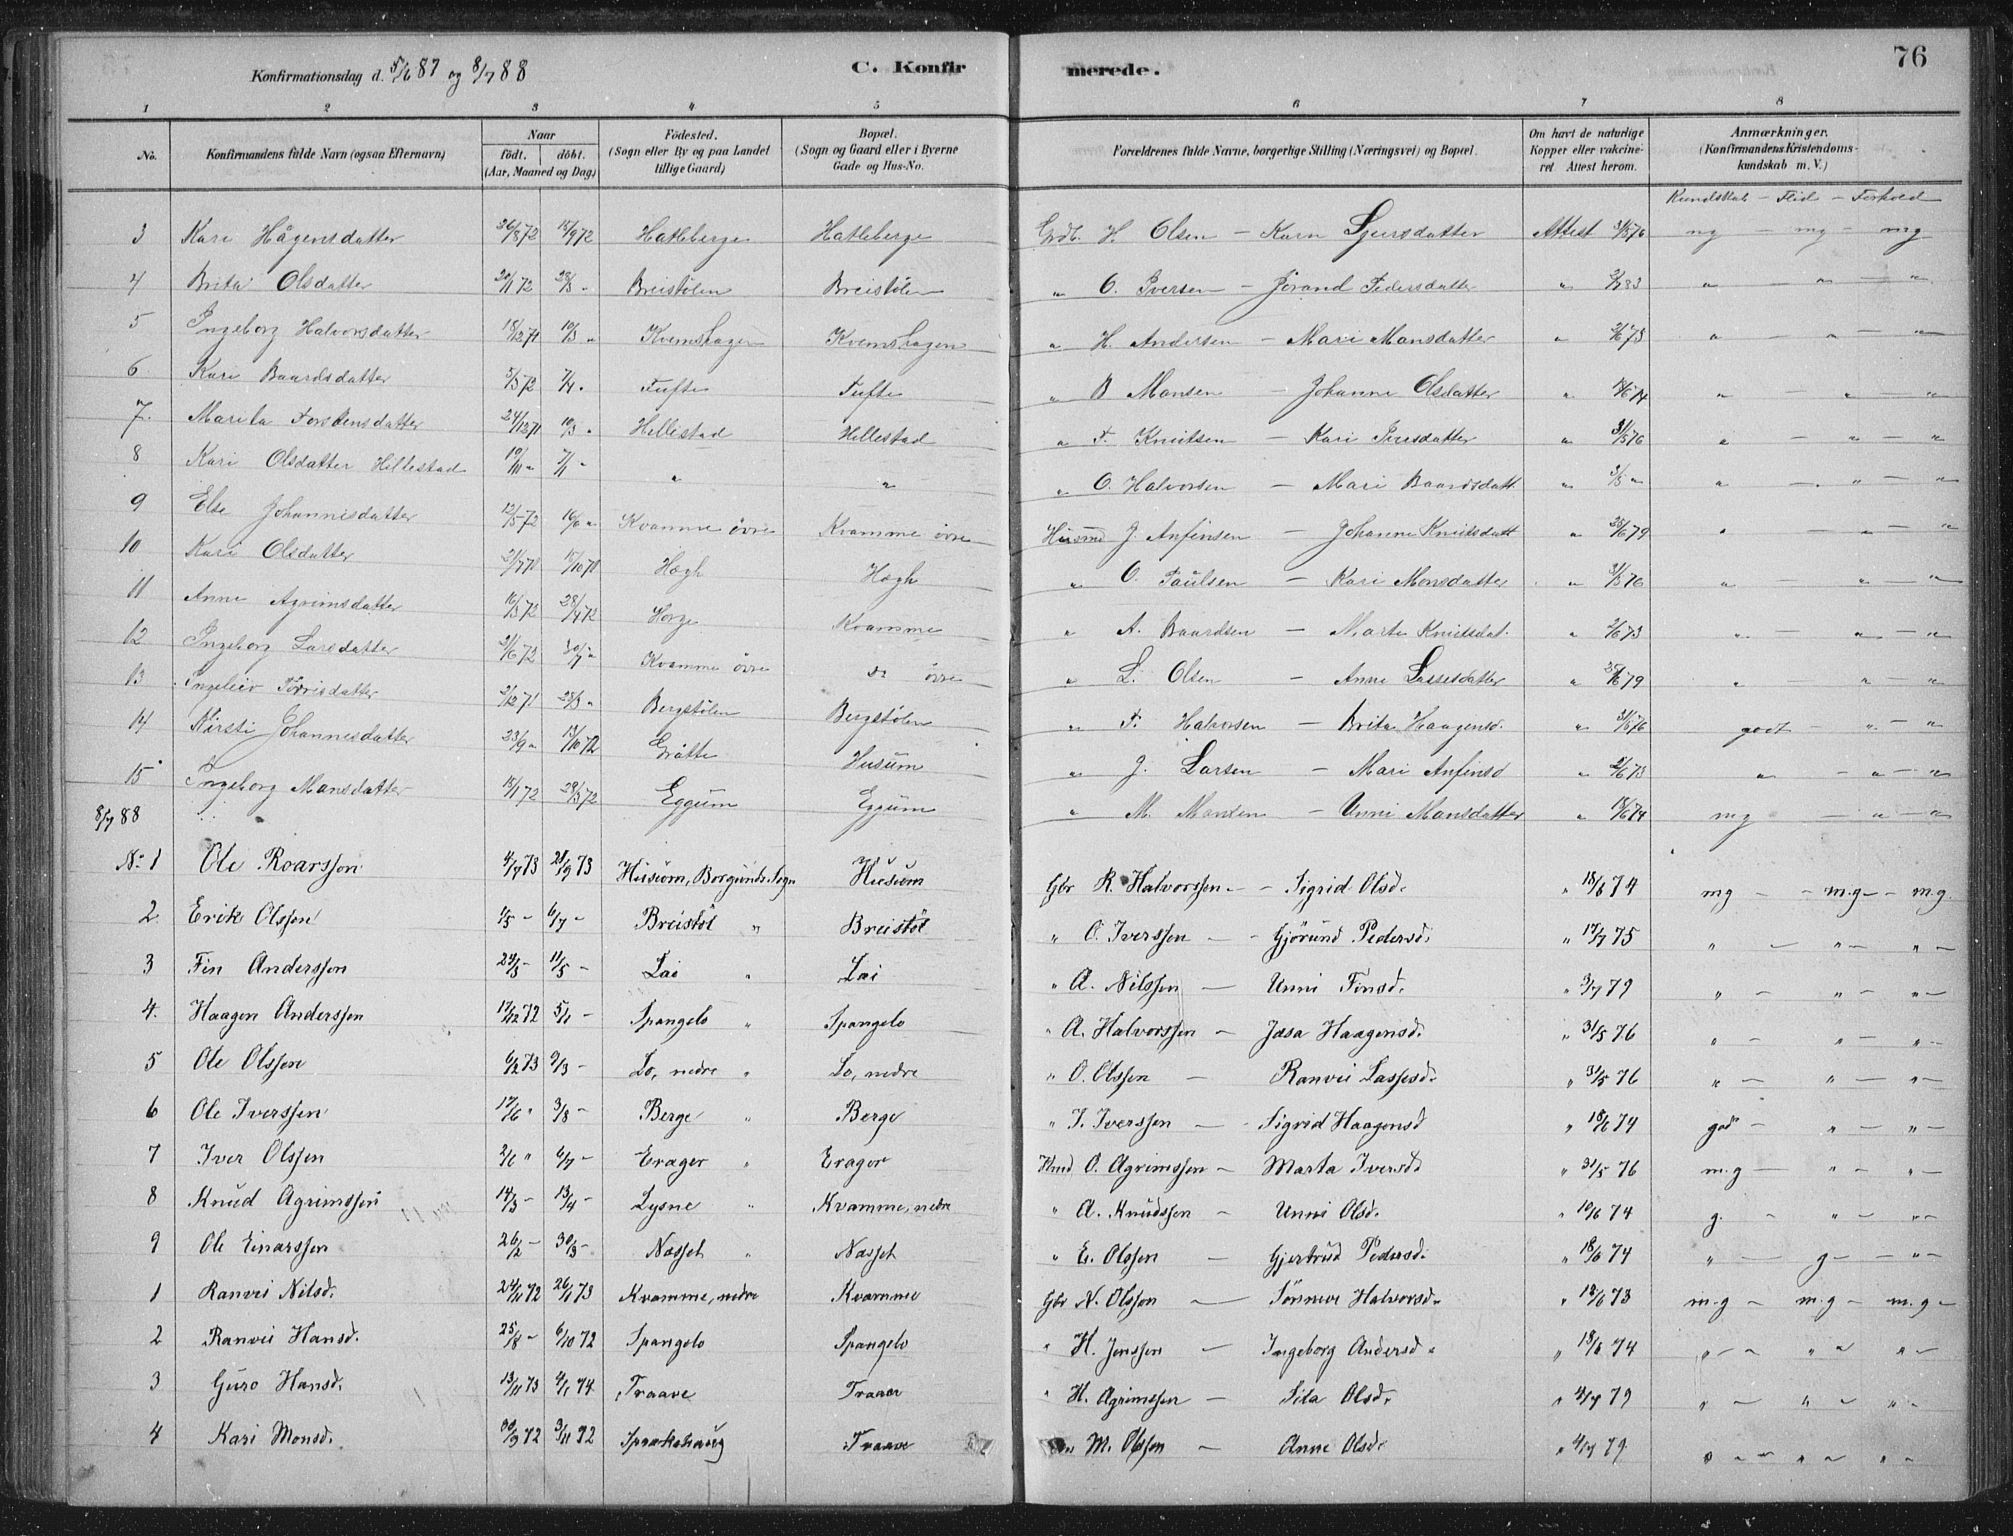 76
Konfirmationsdag d. 5/6 87 og 8/7 88
C. Konfirmerede.
1 2 3 4 5 6 7 8
No. Konfirmandens fulde Navn (ogsaa Efternavn) Naar födt. döbt. (Aar, Maaned og Dag) Födested. (Sogn eller By og paa Landet tillige Gaard) Bopæl. (Sogn og Gaard eller i Byerne Gade og Hus-No. Forældrenes fulde Navne, borgerlige Stilling (Næringsvei) og Bopæl. Om havt de naturlige Kopper eller vakcineret. Attest herom. Anmærkninger. (Konfirmandens Kristendomskundskab m. V.)
Kundskab - Flid - Forhold
3 Kari Hågensdatter 26/8 72 15/9 72 Hatleberge Hatleberge Grdb. H. Olsen - Karn Sjursdatter Attest 31/5 76 mg mg - mg
4 Brita Olsdatter 20/1 72 28/3 " Breistölen Breistölen " O. Iversen - Jörand Pedersdatter " 83 " - " - "
5 Ingeborg Halvorsdatter 18/12 71 10/3 " Kvemshagen Kvemshagen " H. Andersen - Mari Monsdatter " 2/6 73 " - " - "
6 Kari Baardsdatter 3/3 72 7/4 " Tufte Tufte " B Monsen - Johanne Olsdatter " 18/6 74 " - " "
7. Marita Torstensdatter 24/12 71 10/3 " Hillestad Hillestad " T. Knutsen - Kari Iversdatter " 31/5 76 " - " - "
8 Kari Olsdatter Hillestad 19/11 " 7/1 " " " " O. Halvorsen - Mari Baardsdatt. " 3/5 " " - " - "
9 Else Johannisdatter 12/5 72 16/6 " Kvamme övre Kvamme övre Husmd J. Anfinsen - Johanne Knutsdatt " 25/6 79 " - " - "
10 Kari Olsdatter 21/7 71 15/10 71 Hægh Hægh " O. Paulsen - Kari Monsdatter " 31/5 76 " " "
11 Anne Agrimsdatter 16/3 72 28/4 72 Horge Kvamme " A. Baardsen - Marta Knutsdat. " 2/6 73 " - " - "
12 Ingeborg Larsdatter 21/6 72 30/7 " Kvamme övre " övre " L. Olsen - Anne Lassesdatter " 25/6 79 " " "
13 Ingeleiv Torrisdatter 2/12 71 28/3 " Bergstölen Bergstölen " T. Halvorsen - Brita Haagensd. " 31/5 76 godt - " - "
14 Kirsti Johannesdatter 23/9 " 13/10 72 Gråtte Husum " J. Larsen - Mari Anfinsd " 2/6 73 " - " - "
15 Ingeborg Mansdatter 15/1 72 28/3 72 Eggum Eggum " M. Monsen - Unni Mansdatter " 18/6 74 mg - " - "
8/7 88
No 1 Ole Roarsson 4/7 73 21/9 73 Husum, Borgunds Sogn Husum Gbr R. Halvorssen - Sigrid Olsd. " 18/6 74 mg - mg - mg.
2 Erik Olsson 4/5 - 6/7 - Breistöl " Breistöl " O. Iverssen - Gjörund Pedersd. " 17/7 75 " - " - " -
3 Fin Anderssøn 24/3 - 11/5 - Lai " Lai " A. Nilssen - Unni Finsd. " 3/7 79 " - " - " -
4. Haagen Anderssen 17/12 72 5/1 - Spangelo " Spangelo " A. Halvorssen - Jasa Haagensd. " 31/5 76 " - " - " -
5 Ole Olssen 6/2 73 9/3 - Lo, nedre " Lo, nedre " O. Olssen - Ranvei Lassesd. " 31/5 76 " - " - " -
6 Ole Iverssen 17/6 " 3/8 - Berge " Berge " I. Iverssen - Sigrid Haagensd " 18/6 74 godt - " - " -
7 Iver Olssen 2/6 " 6/7 - Erager " Erager Hmd O. Agrimssen - Marta Iversd. " 31/5 76 m.g - " - " -
8 Knud Agrimssen 14/3 - 13/4 - Lysne " Kvamme, nedre " A. Knudssen - Unni Olsd. " 10/6 74 g. - " - " -
9 Ole Einarssen 26/2 - 30/3 - Næsset " Næsset " E. Olssen - Gjertrud Pedersd. " 18/6 74 " - g - " -
1 Ranvei Nilsd. 24/11 72 26/1 73 Kvamme, nedre Kvamme Gbr N. Olssen - Tönneve Halvorsd. " 18/6 73 m.g - m.g - m.g -
2 Ranvei Hansd. 25/8 - 6/10 72 Spangelo Spangelo " H. Jenssen - Ingeborg Andersd. " 18/6 74 " - " - "
3 Guro Hansd. 13/11 73 4/1 74 Traave Traave " H. Agrimssen - Sila Olsd. " 4/7 79 " - " - " -
4 Kari Monsd. 30/9 72 3/11 72 Sprakehaug Traave M. Olssen - Anne Olsd. " 4/7 79 " - " - " -